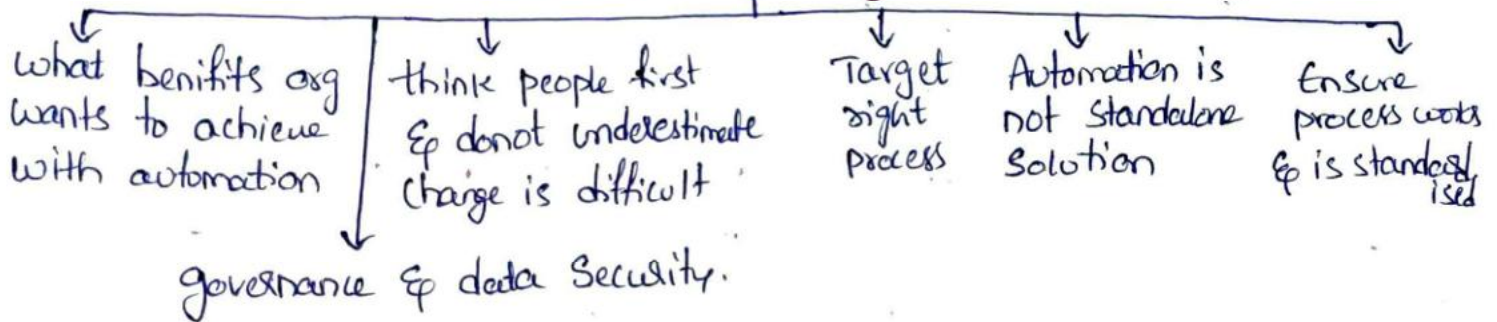 what benifits org
wants to achieve
with automation
think people first
& donot underestimate
change is difficult
Target
right
process
Automation is
not standalone
solution
Ensure
process works
& is standard
ised
governance & data security.